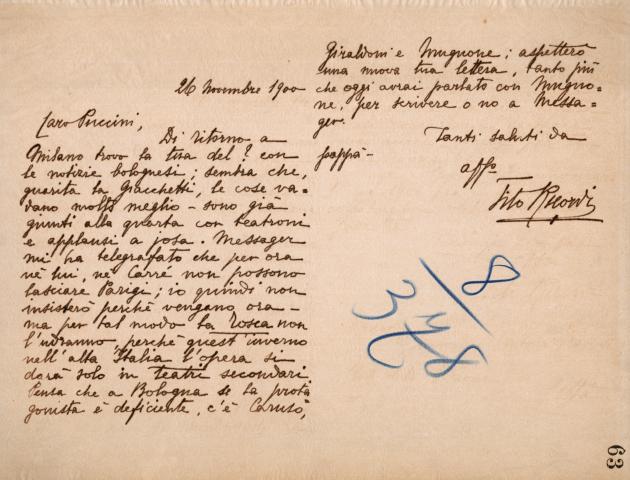 26 Novembre 1900
Caro Puccini,
Di ritorno a
Milano trovo la tua del ? con
le notizie bolognesi; sembra che,
guarita la Giacchetti, le cose va=
dano molto meglio - sono già
giunti alla quarta con teatroni
e applausi a josa. Messager
mi ha telegrafato che per ora
nè lui, nè Carré non possono
lasciare Parigi; io quindi non
insisterò perchè vengano ora -
ma per tal modo la Tosca non
l'udranno, perchè quest'inverno
nell'alta Italia l'opera si
darà solo in teatri secondari.
Pensa che a Bologna se la prota
gonista è deficiente, c'è Caruso,
Giraldoni e Mugnone; aspetterò
una nuova tua lettera, tanto più
che oggi avrai parlato con Mugno=
ne, per scrivere o no a Messa=
ger.
Tanti saluti da
pappà -
affo
Tito Ricordi
8
348
63